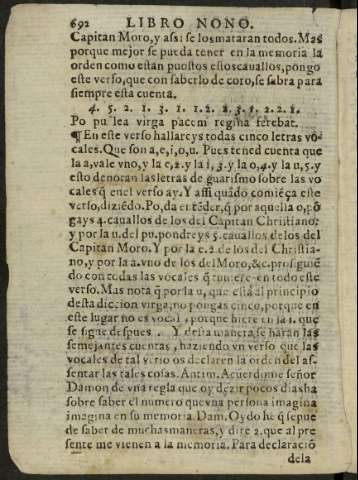 692 LIBRO NONO.
Capitan Moro, y assi se los mataran todos. Mas
porque mejor se pueda tener en la memoria la
orden como estan puostos estos cauallos, pongo
este verso, que con saberlo de coro, se sabra para
siempre esta cuenta.
4. 5. 2. 1. 3. 1. 1. 2. 2. 3. 1. 2. 2. 1.
Po pu lea virga pacem regina ferebat.
¶ En este verso hallareys todas cinco letras vo-
cales. Que son a, e, i, o, u. Pues tened cuenta que
la a, vale vno, y la e, 2. y la i, 3. y la o, 4. y la u, 5. y
esto denotan las letras de guarismo sobre las vo
cales q̃ en el verso ay. Y assi quãdo comiẽça este
verso, diziẽdo. Po, da ei tẽder, q̃ por aquella o, põ
gays 4. cauallos de los del Capitan Christiano:
y por la u. del pu. pondreys 5. cauallos de los del
Capitan Moro. Y por la e. 2. de los del Christia-
no, y por la a. vno de los del Moro, &c. prosiguiẽ
do con todas las vocales q̃ tuuiere en todo este
verso. Mas nota q̃ por la u, que està al principio
desta diccion virga, no pongas cinco, porque en
este lugar no es vocal, porque hiere en la i. que
se sigue despues. Y desta manera se haran las
semejantes cuentas, haziendo vn verso que las
vocales de tal verso os declaren la orden del as-
sentar las tales cosas. Antim. Acuerdome señor
Damon de vna regla que oy dezir pocos dias ha
sobre saber el numero que vna persona imagina
imagina en su memoria. Dam. Oydo he q̃ se pue
de saber de muchas maneras, y dire 2. que al pre
sente me vienen a la memoria. Para declaraciõ
dela